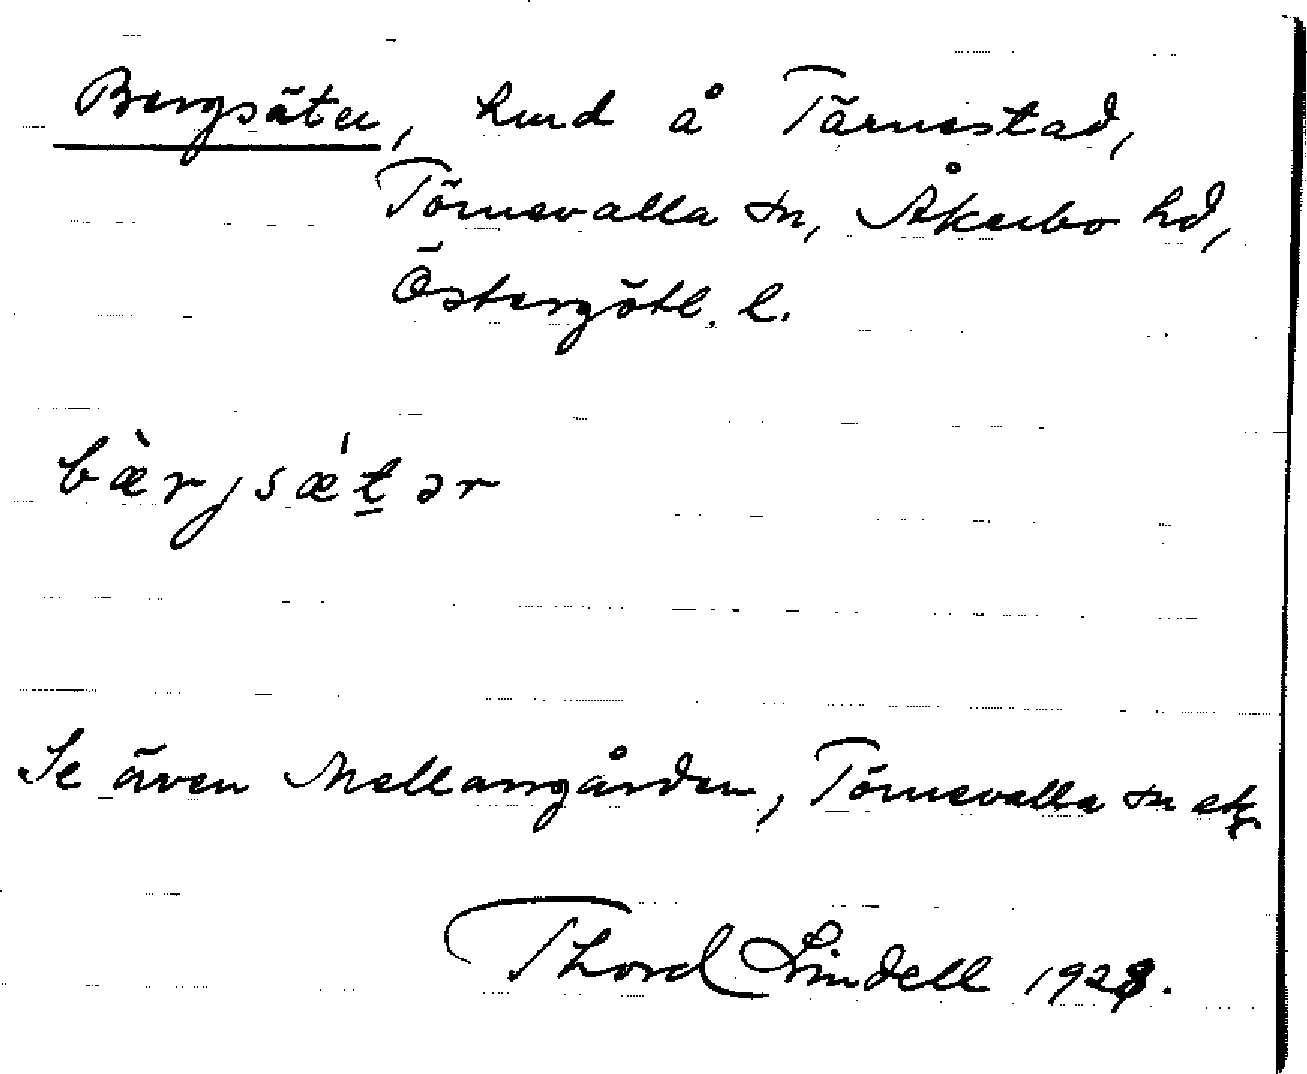 Bergsäter, hmd å Tärnestad,
Törnevalla sn, Åkerbo hd,
Östergötl. l.
bæ̀rjsæ'tər
Se även Mellangården, Törnevalla sn etc.
Thord Lindell 1928.